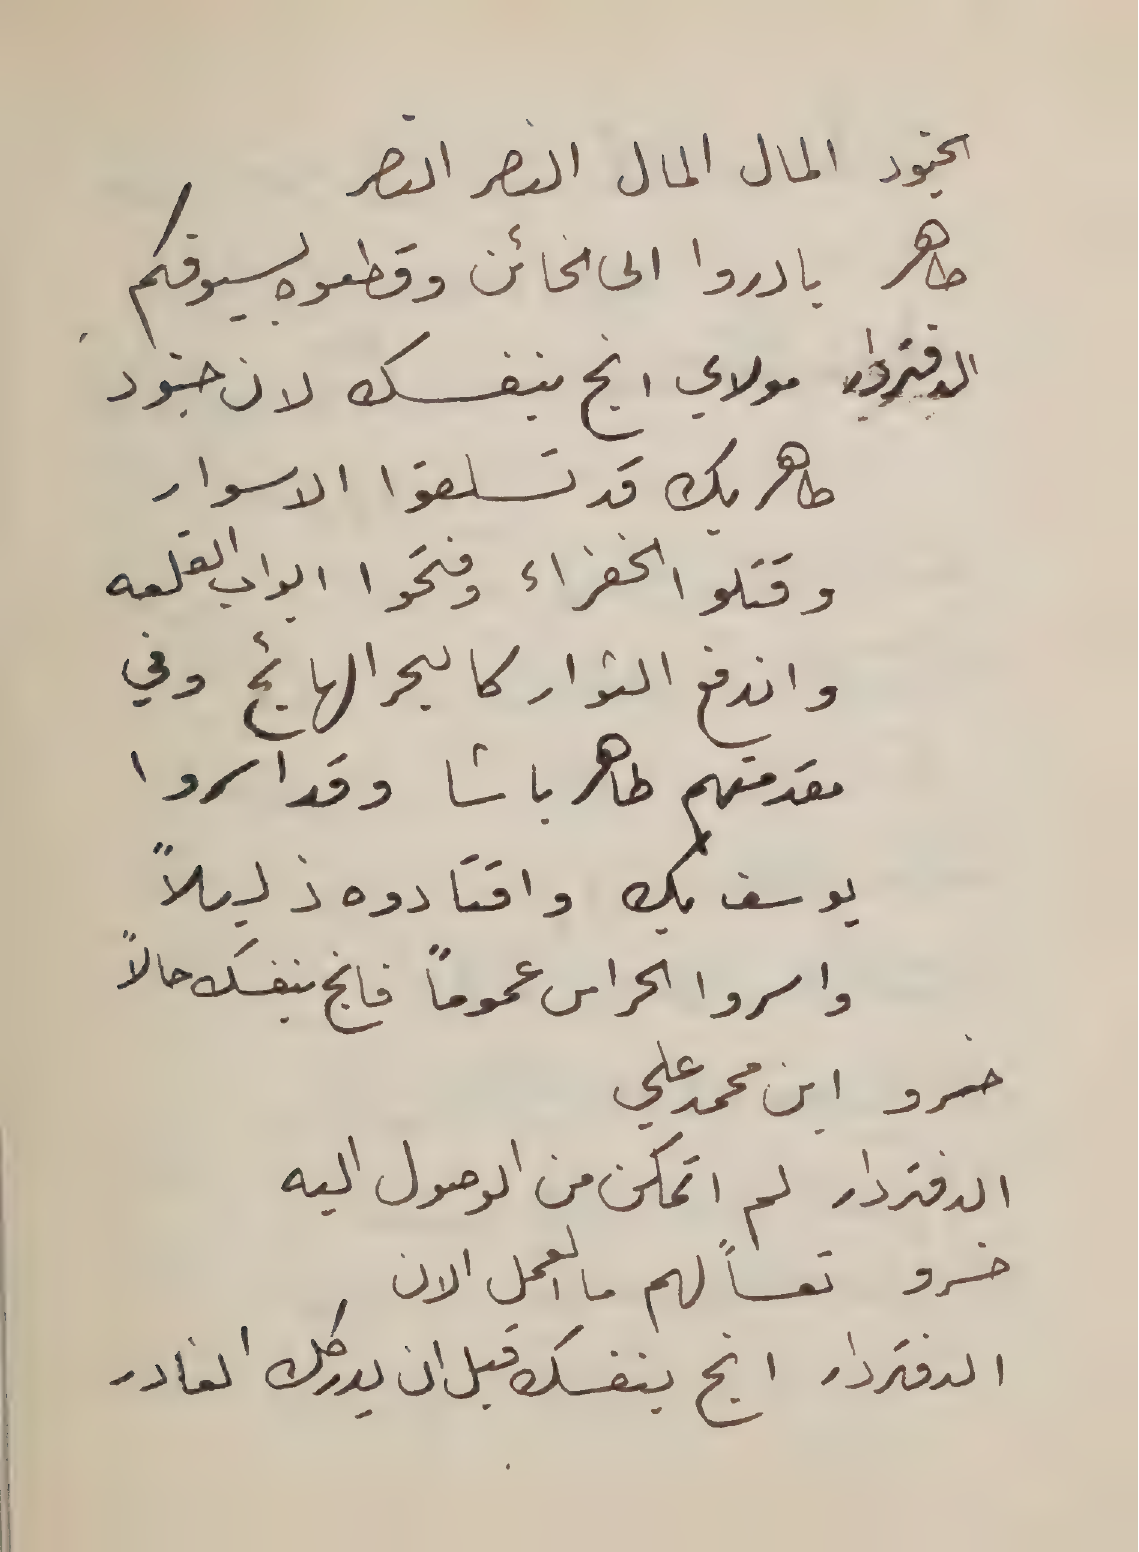 الجنود المال المال النصر النصر
طاهر بادروا الى الخائن وقطعوه بسيوفكم
الدفتردار مولاي انج بنفسك لان جنود
طاهر بك قد تسلقوا الاسوار
وقتلوا الخفراء وفتحوا ابواب القلعه
واندفع الثوار كالبحر الهائج وفي
مقدمتهم طاهر باشا وقد اسروا
يوسف بك واقتادوه ذليلاً
واسروا الحراس عموماً فانج بنفسك حالاً
خسرو اين محمد علي
الدفتردار لم اتمكن من الوصول اليه
خسرو تعساً لهم ما العمل الان
الدفتردار انج بنفسك قبل ان يدركك الغادر